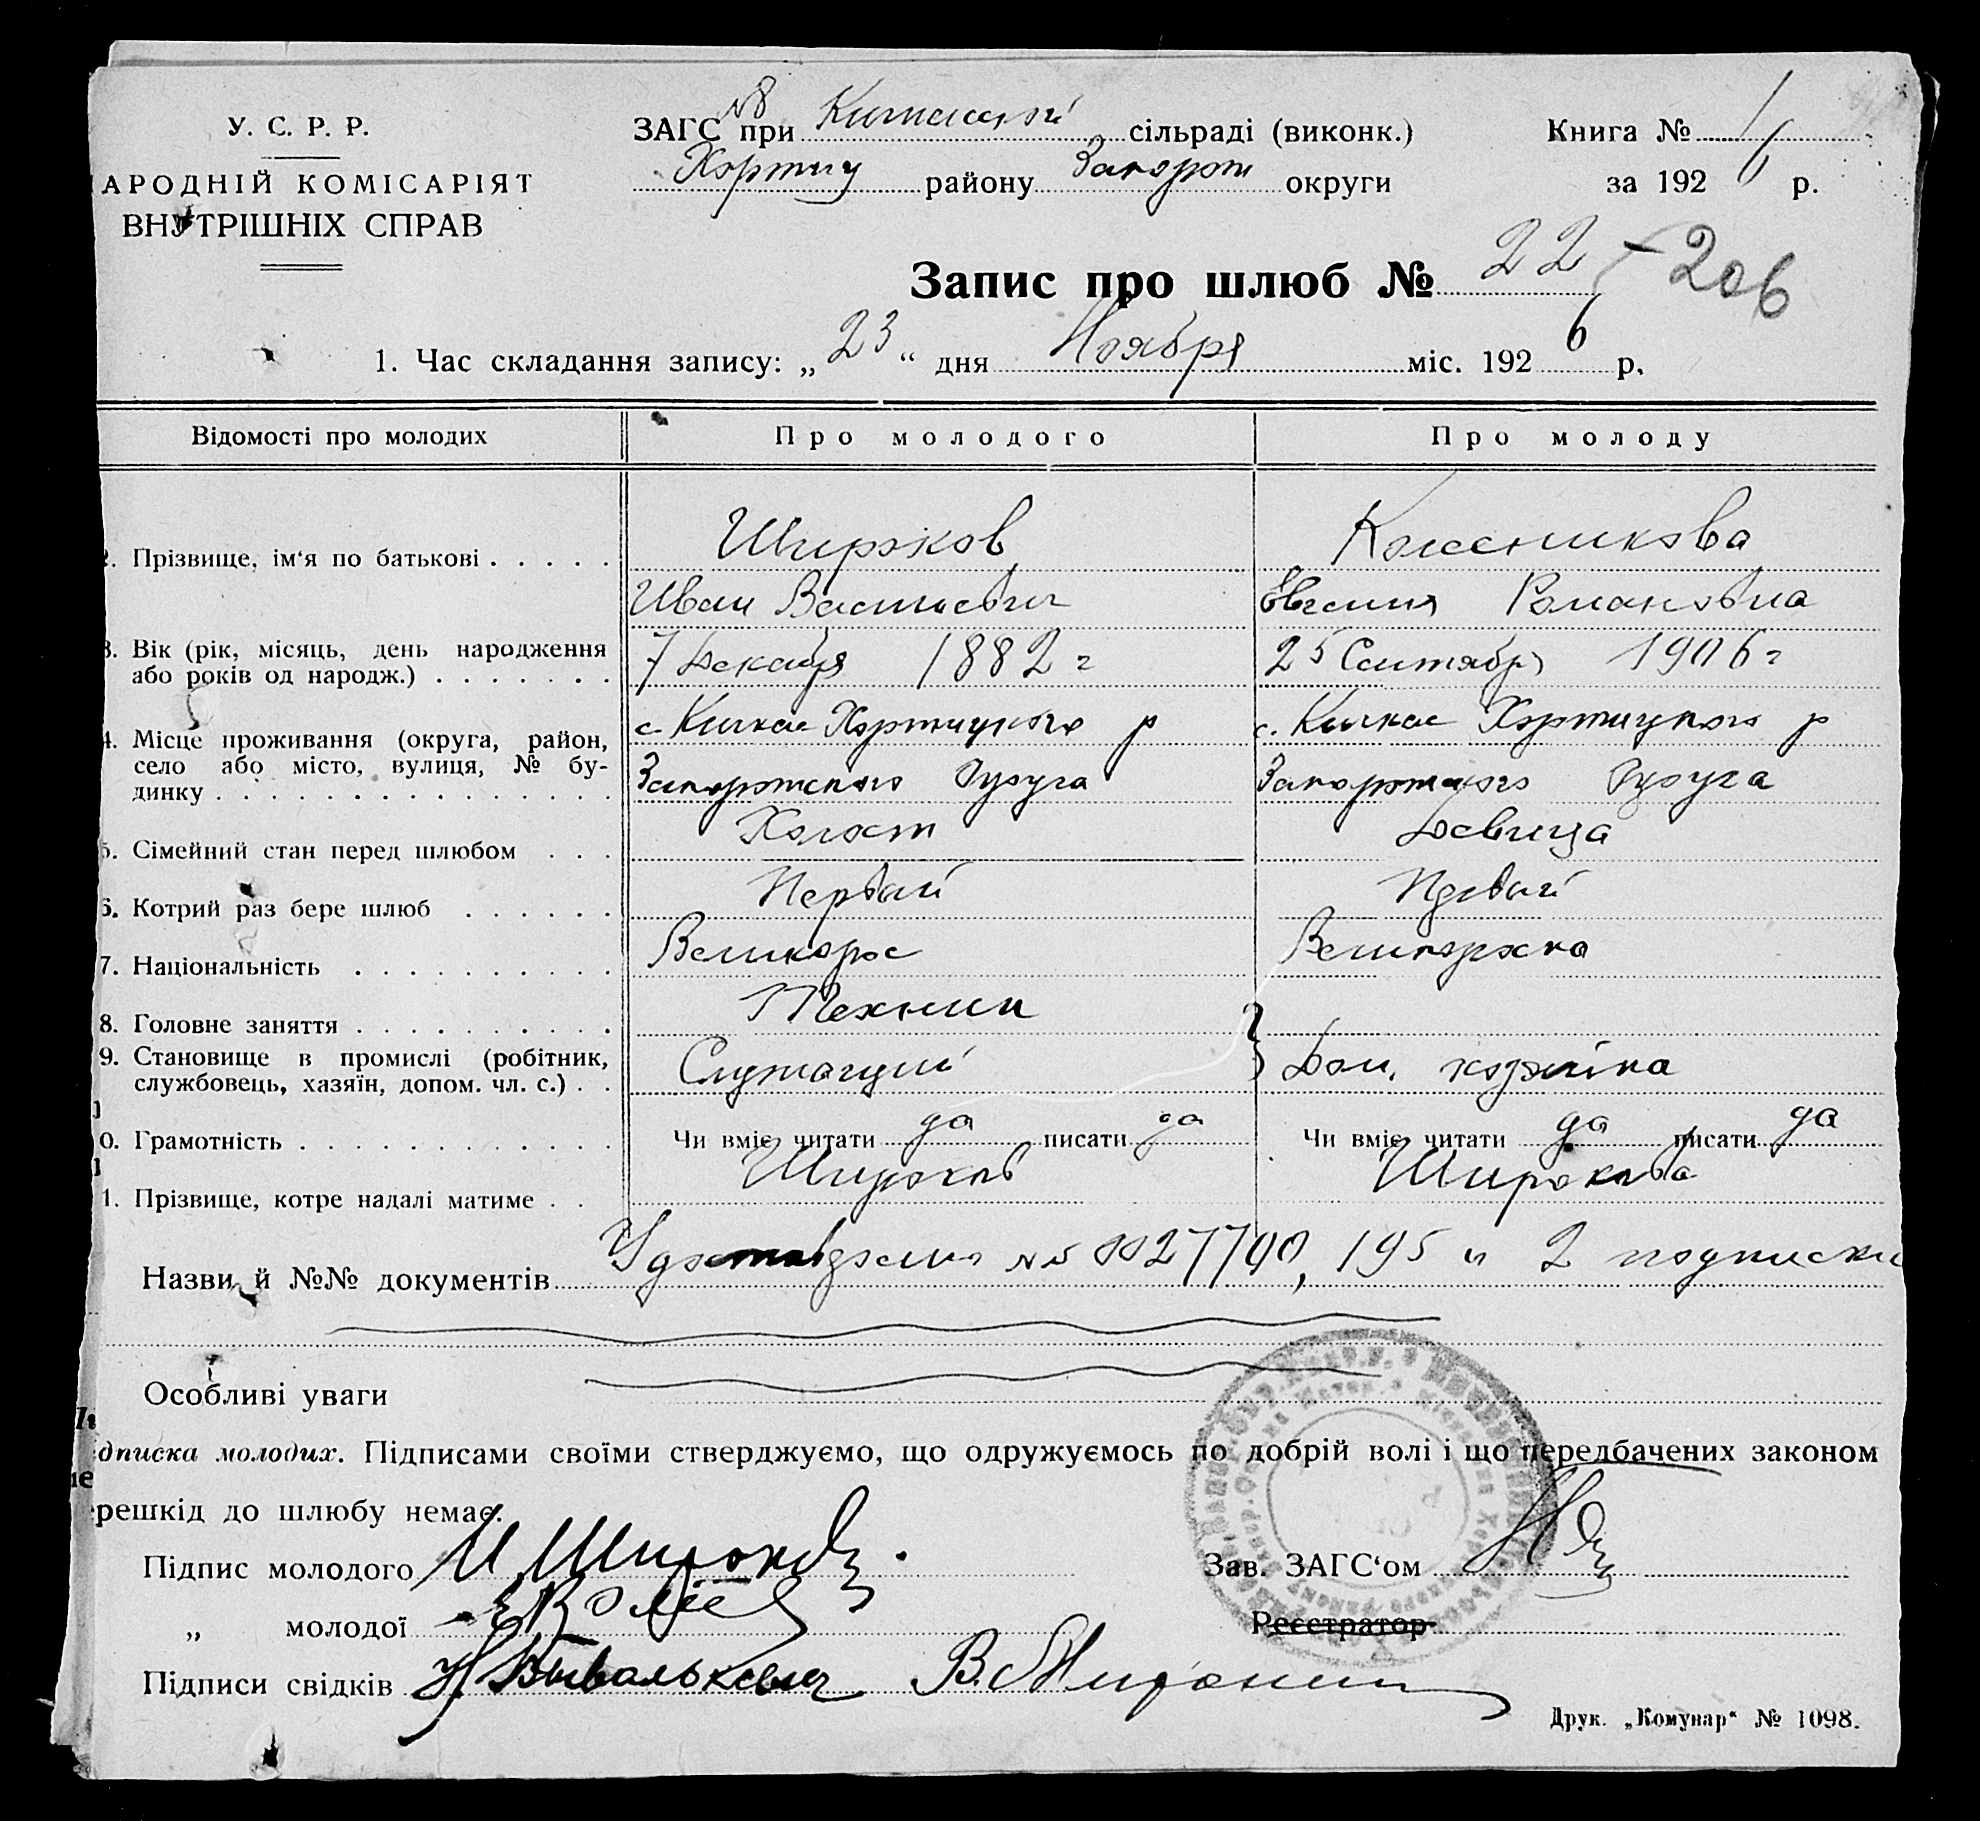 У. С. Р. Р.
АРОДНІЙ КОМІСАРІЯТ
ВНУТРІШНІХ СПРАВ
ЗАГС №8 при Кичкаской сільраді (виконк.)
Хортиц району Запорож округи
Книга № 1
за 1926 р.
Запис про шлюб № 22 - 206
1. Час складання запису: „23“ дня Ноября міс. 1926 р.
Відомості про молодих Про молодого Про молоду
2. Прізвище, ім‘я по батькові Широков Колесникова
Иван Васильевич Евгения Романовна
3. Вік (рік, місяць, день народження
або років од народж.) 7 Декабря 1882 г 25 Сентября 1906 г
с Кичкас Хортицкого р с. Кичкас Хортицкого р
4. Місце проживання (округа, район,
село або місто, вулиця, № бу-
динку Запорожского Округа Запорожского Округа
5. Сімейний стан перед шлюбом Холост Девица
6. Котрий раз бере шлюб Первый Первый
7. Національність Великорос Великороска
8. Головне заняття Техник
9. Становище в промислі (робітник,
службовець, хазяїн, допом. чл. с.) Служащий Дом. хозяйка
0. Грамотність Чи вміє читати да писати да Чи вміє читати да писати да
1. Прізвище, котре надалі матиме Широков Широкова
Назви й №№ документів Удостоверения №№ 195 и 2 подписки
Особливі уваги
дписка молодих. Підписами своїми стверджуємо, що одружуємось по добрій волі і що передбачених законом
решкід до шлюбу немає.
Підпис молодого И Широков
„ молодої Е Колес
Підписи свідків В. Миронин
Зав. ЗАГС‘ом
Реєстратор
Друк. „Комунар“ № 1098.